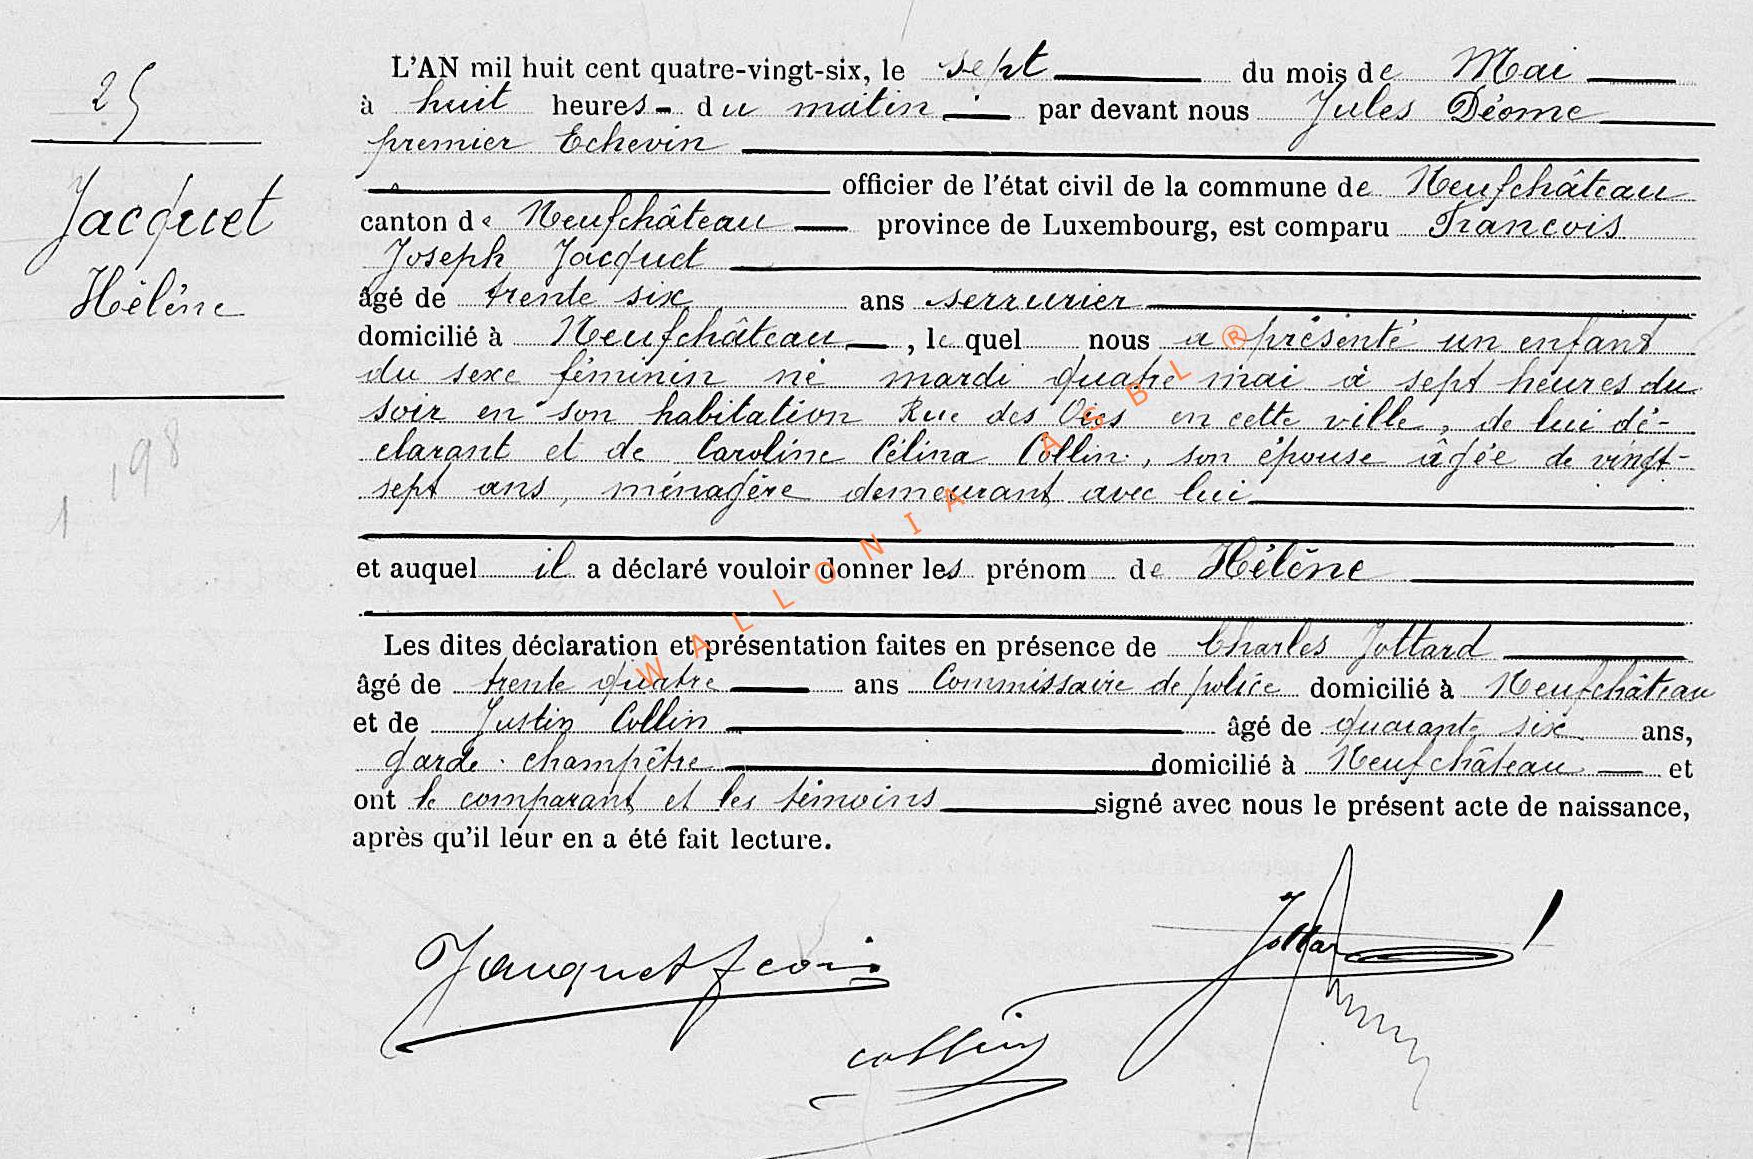 25
Jacquet
Hélène
198
1
L'AN mil huit cent quatre-vingt-six, le sept du mois de Mai
à huit heures du matin par devant nous Jules Déome
premier Echevin
officier de l'état civil de la commune de Neufchâteau
canton de Neufchâteau province de Luxembourg, est comparu Francois
Joseph Jacquet
âgé de trente six ans serrurier
domicilié à Neufchâteau, le quel nous a présenté un enfant
du sexe féminin né mardi quatre mai à sept heures du
soir en son habitation Rue des Oies en cette ville, de lui dé-
clarant et de Caroline Célina Collin, son épouse âgée de vingt-
sept ans, ménagère demeurant avec lui
et auquel il a déclaré vouloir donner les prénom de Hélène
Les dites déclaration et présentation faites en présence de Charles Jottard
âgé de trente quatre ans Commissaire de police domicilié à Neufchâteau
et de Justin Collin âgé de quarante six ans,
garde champêtre domicilié à Neufchâteau et
ont le comparant et les témoins signé avec nous le présent acte de naissance,
après qu'il leur en a été fait lecture.
Jacquet fcois
Jottard
collin
WALLONIA ASBL ®